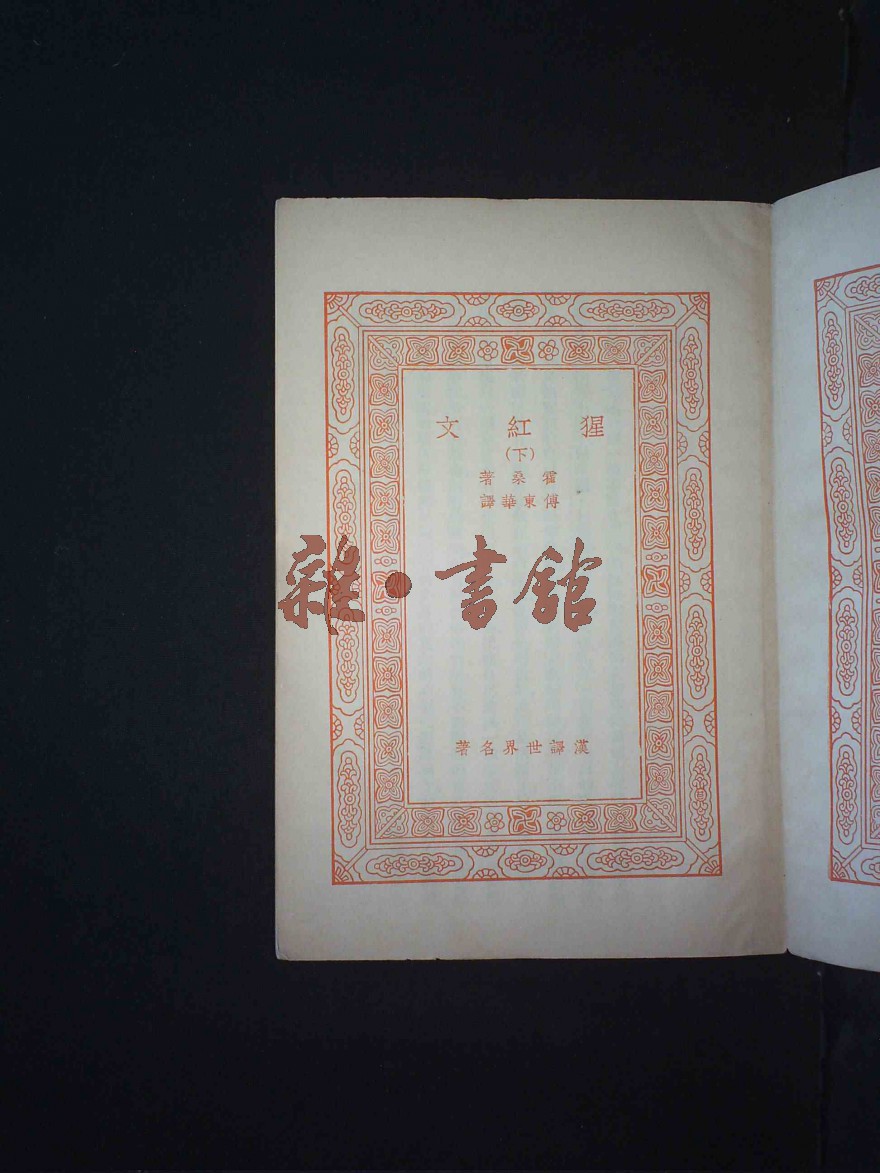 猩紅文
(下)
霍桑著
傅東華譯
雜·書館
漢譯世界名著